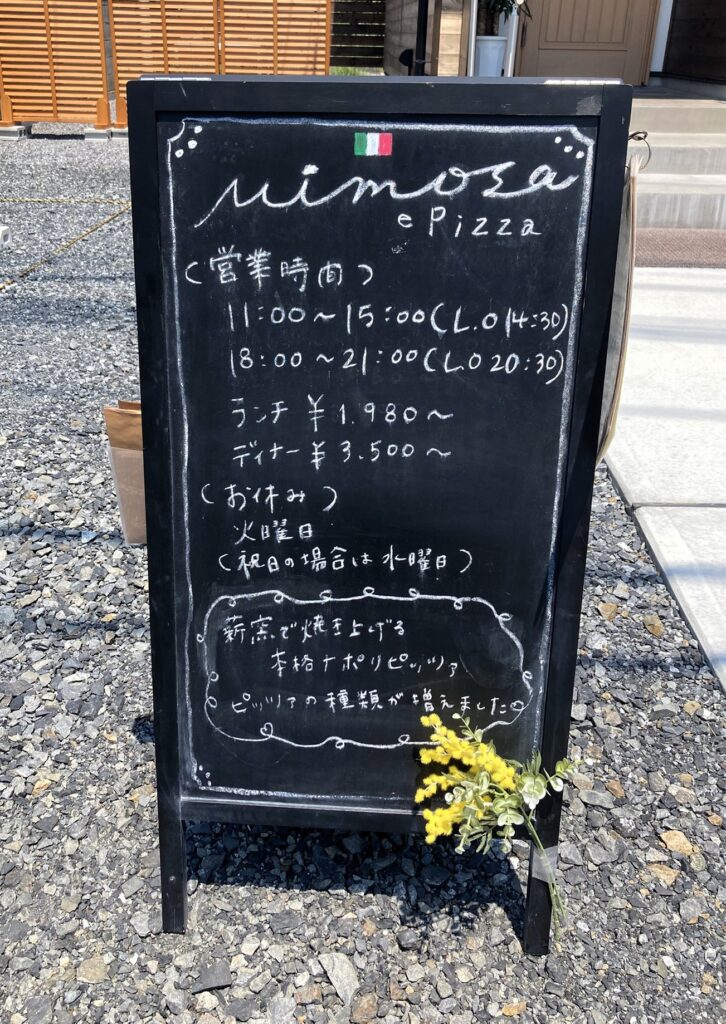 mimosa
e Pizza
(営業時間)
11:00～15:00(L.O 14:30)
18:00～21:00(L.O 20:30)
ランチ ¥1.980～
ディナー ¥3.500～
(お休み)
火曜日
(祝日の場合は水曜日)
薪窯で焼き上げる
本格ナポリピッツァ
ピッツァの種類が増えました♡